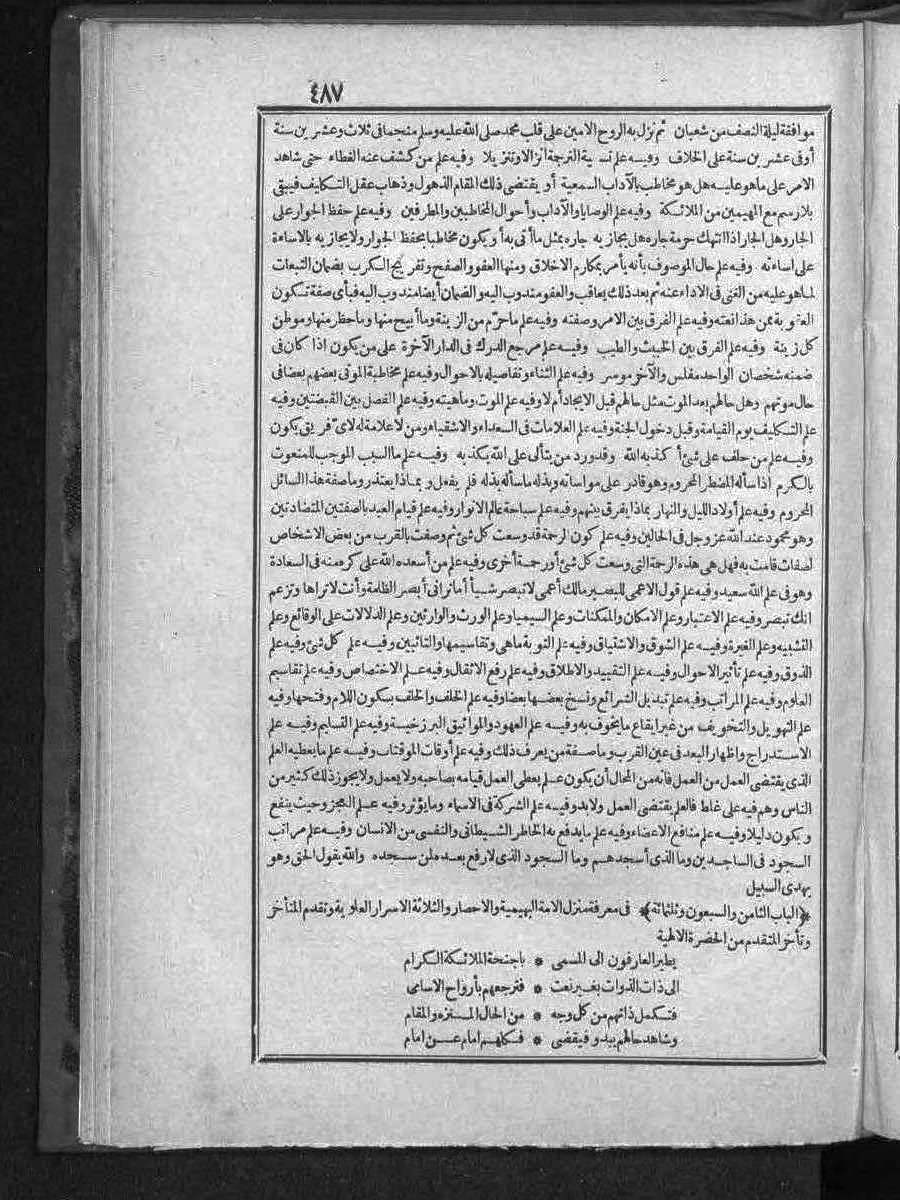 ٤٨٧
موافقة ليلة النصف من شعبان ثم نزل به الروح الامين على قلب محمد صلى الله عليه وسلم منجما فى ثلاث وعشرين سنة
أو فى عشرين سنة على الخلاف وفيه علم تسمية الترجمة انزالا وتنزيلا وفيه علم من كشف عنه الغطاء حتى شاهد
الامر على ما هو عليه هل هو مخاطب بالآداب السمعية أو يقتضى ذلك المقام الذهول وذهاب عقل التكليف فيبقى
بلا رسم مع المهيمين من الملائكة وفيه علم الوصايا والآداب وأحوال المخاطبين والمطرفين وفيه علم حفظ الجوار على
الجار وهل الجار اذا انتهك حرمة جاره هل يجازيه جاره بمثل ما أتى به أو يكون مخاطبا بحفظ الجوار ولا يجازيه بالاساءة
على اساءته وفيه علم حال الموصوف بأنه يأمر بمكارم الاخلاق ومنها العفو والصفح وتفريج الكرب بضمان التبعات
لما هو عليه من الغنى فى الاداء عنه ثم بعد ذلك يعاقب والعفو مندوب اليه والضمان أيضا مندوب اليه فبأى صفة تكون
العقوبة ممن هذا نعته وفيه علم الفرق بين الامر وصفته وفيه علم ما حرّم من الزينة وما أبيح منها وما حظر منها وموطن
كل زينة وفيه علم الفرق بين الخبيث والطيب وفيه علم مرجع الدرك فى الدار الآخرة على من يكون اذا كان فى
ضمنه شخصان الواحد مفلس والآخر موسر وفيه علم الثناء وتفاصيله بالاحوال وفيه علم مخاطبة الموتى بعضهم بعضا فى
حال موتهم وهل حالهم بعد الموت مثل حالهم قبل الايجاد أم لا وفيه علم الموت وماهيته وفيه علم الفصل بين القبضتين وفيه
علم التكليف يوم القيامة وقبل دخول الجنة وفيه علم العلامات فى السعداء والاشقياء ومن لا علامة له لاىّ فريق يكون
وفيه علم من حلف على شئ أكذبه الله وقد ورد من يتألى على الله يكذبه وفيه علم ما السبب الموجب للمنعوت
بالكرم اذا سأله المضطر المحروم وهو قادر على مواساته وبذله ما سأله بذله فلم يفعل وبماذا يعتذر وما صفة هذا السائل
المحروم وفيه علم أولاد الليل والنهار بماذا يفرق بينهم وفيه علم سباحة عالم الانوار وفيه علم قيام العبد بالصفتين المتضادتين
وهو محمود عند الله عز وجل فى الحالين وفيه علم كون الرحمة قد وسعت كل شئ ثم وصفت بالقرب من بعض الاشخاص
لصفات قامت به فهل هى هذه الرحمة التى وسعت كل شئ أو رحمة أخرى وفيه علم من أسعده الله على كره منه فى السعادة
وهو فى علم الله سعيد وفيه علم قول الاعمى للبصير مالك أعمى لا تبصر شيأ أما ترانى أبصر الظلمة وأنت لا تراها وتزعم
انك تبصر وفيه علم الاعتبار وعلم الامكان والممكنات وعلم السيميا وعلم الورث والوارثين وعلم الدلالات على الوقائع وعلم
التشبيه وعلم الغيرة وفيه علم الشوق والاشتياق وفيه علم التوبة ماهى وتقاسيمها والتائبين وفيه علم كل شئ وفيه علم
الذوق وفيه علم تأثير الاحوال وفيه علم التقييد والاطلاق وفيه علم رفع الاثقال وفيه علم الاختصاص وفيه علم تقاسيم
العلوم وفيه علم المراتب وفيه علم تبديل الشرائع ونسخ بعضها بعضا وفيه علم الخلف والخلف بسكون اللام وفتحها وفيه
علم التهويل والتخويف من غير ايقاع ما يخوف به وفيه علم العهود والمواثيق البرزخية وفيه علم التسليم وفيه علم
الاستدراج واظهار البعد فى عين القرب وما صفة من يعرف ذلك وفيه علم أوقات الموقتات وفيه علم ما يعطيه العلم
الذى يقتضى العمل من العمل فانه من المحال أن يكون علم يعطى العمل قيامه بصاحبه ولا يعمل ولا يجوز ذلك كثير من
الناس وهم فيه على غلط فالعلم يقتضى العمل ولابد وفيه علم الشركة فى الاسماء وما يؤثر وفيه علم العجز وحيث ينفع
ويكون دليلا وفيه علم منافع الاعضاء وفيه علم ما يدفع به الخاطر الشيطانى والنفسى من الانسان وفيه علم مراتب
السجود فى الساجدين وما الذى أسجدهم وما السجود الذى لا رفع بعده لمن سجده والله يقول الحق وهو
يهدى السبيل
﴿الباب الثامن والسبعون وثلثمائة﴾ فى معرفة منزل الامة البهيمية والاحصار والثلاثة الاسرار العلوية وتقدم المتأخر
وتأخر المتقدم من الحضرة الالهية
يطير العارفون الى المسمى * باجنحة الملائكة الكرام
الى ذات الذوات بغير نعت * فترجعهم بأرواح الاسامى
فتكمل ذاتهم من كل وجه * من الحال المنزه والمقام
وشاهد حالهم يبدو فيقضى * فكلهم امام عن امام